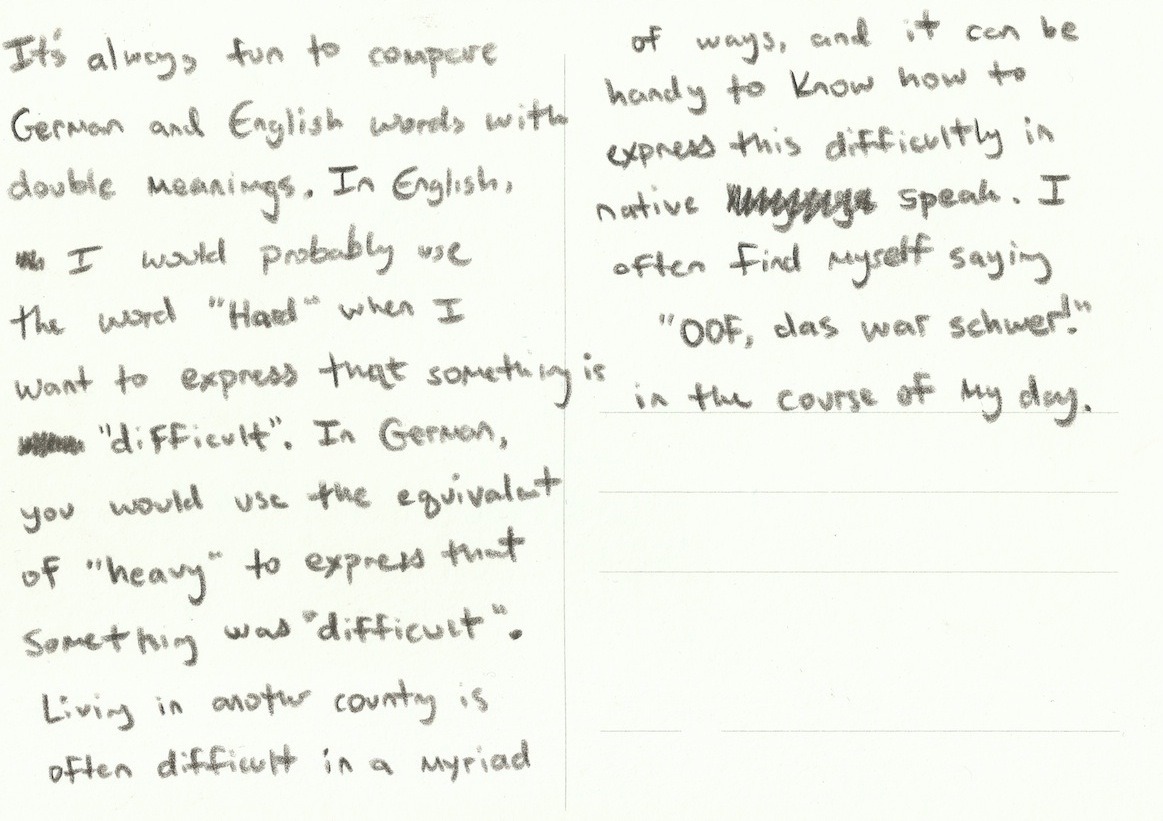 It's always fun to compare
German and English words with
double meanings. In English,
I would probably use
the word "Hard" when I
want to express that something is
"difficult". In German,
you would use the equivalent
of "heavy" to express that
Something was "difficult".
Living in another county is
often difficult in a myriad
of ways, and it can be
handy to know how to
express this difficultly in
native speak. I
often find myself saying
"OOF, das war schwer!"
in the course of my day.